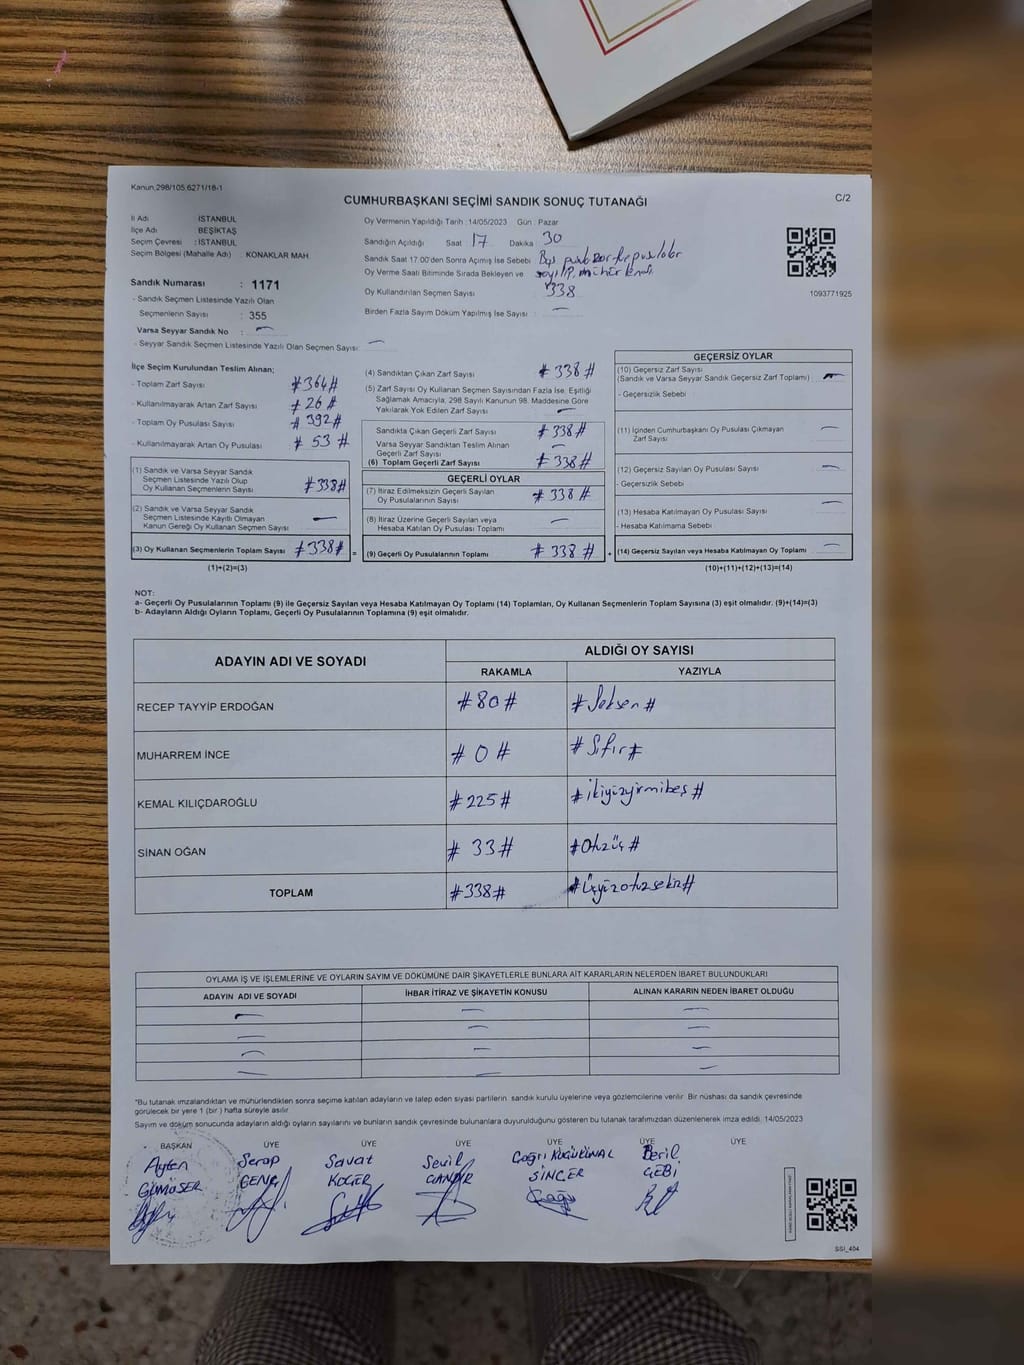 Kanun,298/105,6271/18-1
CUMHURBAŞKANI SEÇİMİ SANDIK SONUÇ TUTANAĞI
C/2
İl Adı İSTANBUL
İlçe Adı BEŞİKTAŞ
Seçim Çevresi : İSTANBUL
Seçim Bölgesi (Mahalle Adı) : KONAKLAR MAH
Sandık Numarası : 1171
- Sandık Seçmen Listesinde Yazılı Olan
Seçmenlerin Sayısı : 355
Varsa Seyyar Sandık No :
- Seyyar Sandık Seçmen Listesinde Yazılı Olan Seçmen Sayısı:
Oy Vermenin Yapıldığı Tarih : 14/05/2023 Gün : Pazar
Sandığın Açıldığı Saat 17 Dakika 30
Sandık Saat 17:00'den Sonra Açılmış İse Sebebi
Oy Verme Saati Bitiminde Sırada Bekleyen ve
Oy Kullandırılan Seçmen Sayısı 338
Birden Fazla Sayım Döküm Yapılmış İse Sayısı :
1093771925
İlçe Seçim Kurulundan Teslim Alınan;
- Toplam Zarf Sayısı #364#
- Kullanılmayarak Artan Zarf Sayısı #26#
- Toplam Oy Pusulası Sayısı #392#
- Kullanılmayarak Artan Oy Pusulası #53#
(1) Sandık ve Varsa Seyyar Sandık
Seçmen Listesinde Yazılı Olup
Oy Kullanan Seçmenlerin Sayısı #338#
(2) Sandık ve Varsa Seyyar Sandık
Seçmen Listesinde Kayıtlı Olmayan
Kanun Gereği Oy Kullanan Seçmen Sayısı
(3) Oy Kullanan Seçmenlerin Toplam Sayısı #338# =
(1)+(2)=(3)
(4) Sandıktan Çıkan Zarf Sayısı #338#
(5) Zarf Sayısı Oy Kullanan Seçmen Sayısından Fazla İse, Eşitliği
Sağlamak Amacıyla, 298 Sayılı Kanunun 98. Maddesine Göre
Yakılarak Yok Edilen Zarf Sayısı
Sandıkta Çıkan Geçerli Zarf Sayısı #338#
Varsa Seyyar Sandıktan Teslim Alınan
Geçerli Zarf Sayısı
(6) Toplam Geçerli Zarf Sayısı #338#
GEÇERLİ OYLAR
(7) İtiraz Edilmeksizin Geçerli Sayılan
Oy Pusulalarının Sayısı #338#
(8) İtiraz Üzerine Geçerli Sayılan veya
Hesaba Katılan Oy Pusulası Toplamı
(9) Geçerli Oy Pusulalarının Toplamı #338# +
GEÇERSİZ OYLAR
(10) Geçersiz Zarf Sayısı
(Sandık ve Varsa Seyyar Sandık Geçersiz Zarf Toplamı)
- Geçersizlik Sebebi
(11) İçinden Cumhurbaşkanı Oy Pusulası Çıkmayan
Zarf Sayısı
(12) Geçersiz Sayılan Oy Pusulası Sayısı
- Geçersizlik Sebebi
(13) Hesaba Katılmayan Oy Pusulası Sayısı
- Hesaba Katılmama Sebebi
(14) Geçersiz Sayılan veya Hesaba Katılmayan Oy Toplamı
(10)+(11)+(12)+(13)=(14)
NOT:
a- Geçerli Oy Pusulalarının Toplamı (9) ile Geçersiz Sayılan veya Hesaba Katılmayan Oy Toplamı (14) Toplamları, Oy Kullanan Seçmenlerin Toplam Sayısına (3) eşit olmalıdır. (9)+(14)=(3)
b- Adayların Aldığı Oyların Toplamı, Geçerli Oy Pusulalarının Toplamına (9) eşit olmalıdır.
ADAYIN ADI VE SOYADI
ALDIĞI OY SAYISI
RAKAMLA YAZIYLA
RECEP TAYYİP ERDOĞAN #80# #Seksen#
MUHARREM İNCE #0# #Sıfır#
KEMAL KILIÇDAROĞLU #225# #ikiyüzyirmibeş#
SİNAN OĞAN #33# #Otuzüç#
TOPLAM #338# #Üçyüzotuzsekiz#
OYLAMA İŞ VE İŞLEMLERİNE VE OYLARIN SAYIM VE DÖKÜMÜNE DAİR ŞİKAYETLERLE BUNLARA AİT KARARLARIN NELERDEN İBARET BULUNDUKLARI
ADAYIN ADI VE SOYADI İHBAR İTİRAZ VE ŞİKAYETİN KONUSU ALINAN KARARIN NEDEN İBARET OLDUĞU
*Bu tutanak imzalandıktan ve mühürlendikten sonra seçime katılan adayların ve talep eden siyasi partilerin sandık kurulu üyelerine veya gözlemcilerine verilir. Bir nüshası da sandık çevresinde
görülecek bir yere 1 (bir) hafta süreyle asılır.
Sayım ve döküm sonucunda adayların aldığı oyların sayılarını ve bunların sandık çevresinde bulunanlara duyurulduğunu gösteren bu tutanak tarafımızdan düzenlenerek imza edildi. 14/05/2023
BAŞKAN ÜYE ÜYE ÜYE ÜYE ÜYE ÜYE
Ayten Serap Savat Sevil Çağrı Beril
GÜMÜŞER GENÇ KOÇER CANDIR SİNCER ÇEBİ
SSI_404